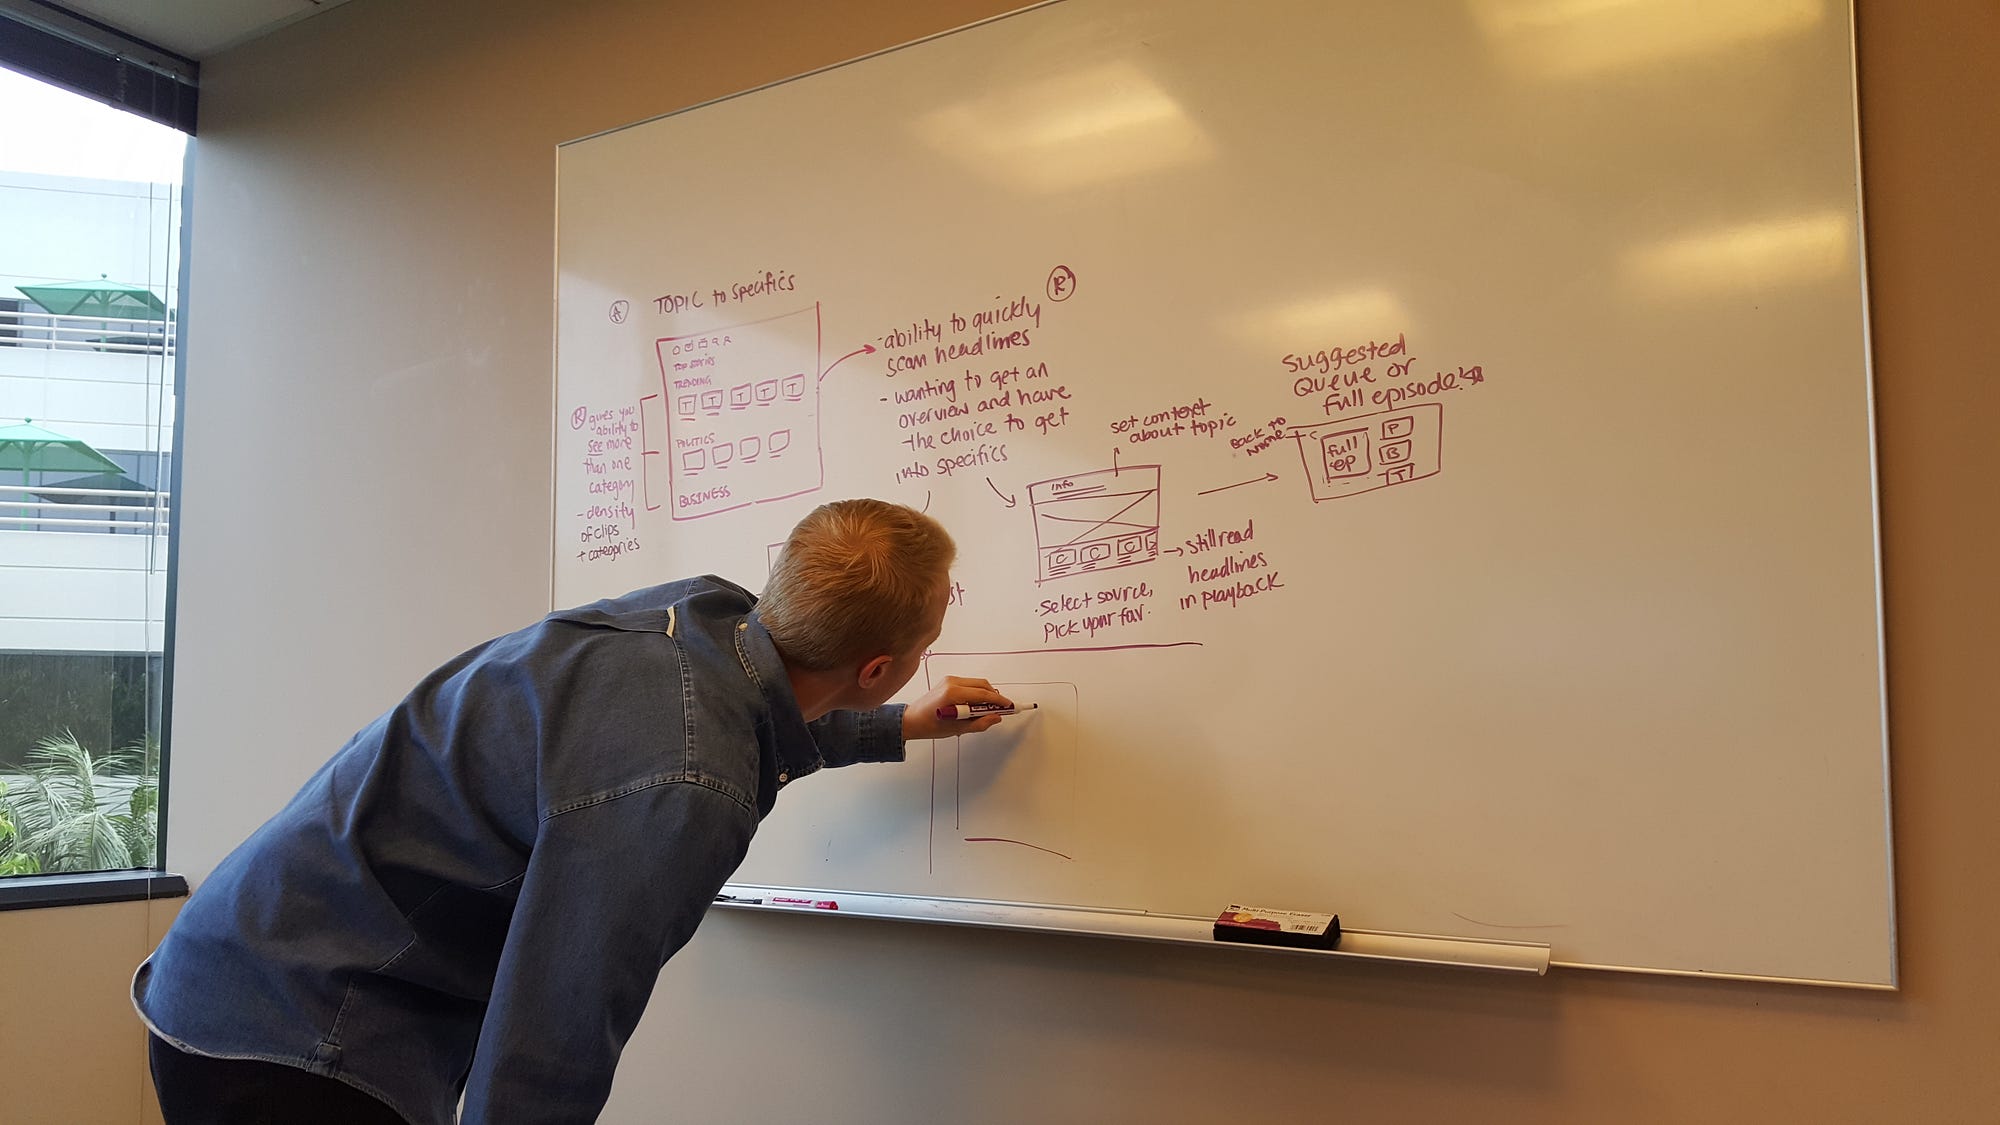 A
TOPIC to Specifics
TOP STORIES
TRENDING
T T T T T
POLITICS
BUSINESS
R gives you
ability to
see more
than one
category
- density
of clips
+ categories
R
- ability to quickly
scan headlines
- wanting to get an
overview and have
the choice to get
into specifics
set context
about topic
info
C C C
→ still read
headlines
in playback
· select source,
pick your fav.
Suggested
Queue or
full episode?
Back to
full
ep
P
B
T
Multi-Purpose Eraser